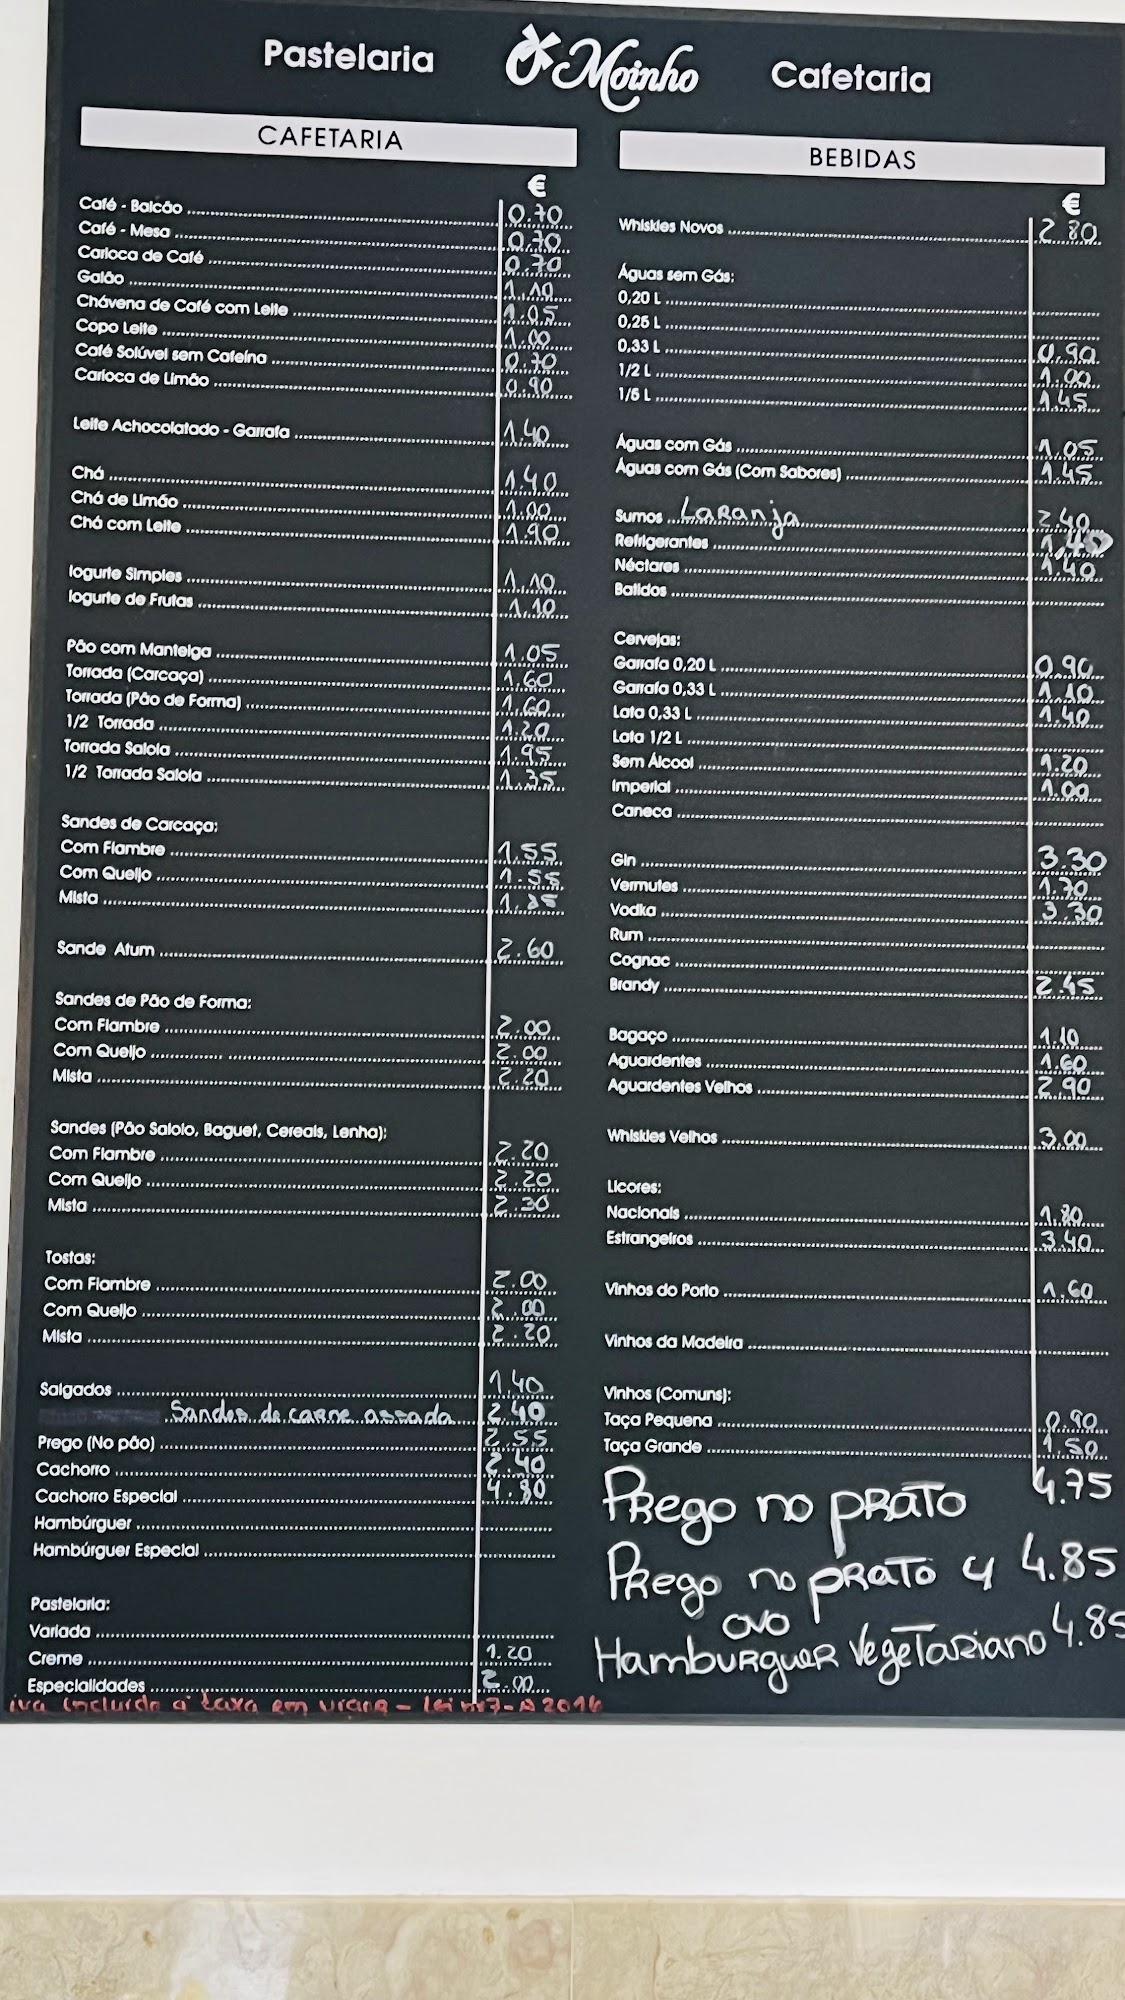 Pastelaria O Moinho Cafetaria
CAFETARIA
€
Café - Balcão 0.70
Café - Mesa 0.70
Carioca de Café 0.70
Galão 1.10
Chávena de Café com Leite 1.05
Copo Leite 1.00
Café Solúvel sem Cafeína 0.70
Carioca de Limão 0.90
Leite Achocolatado - Garrafa 1.40
Chá 1.40
Chá de Limão 1.00
Chá com Leite 1.90
Iogurte Simples 1.10
Iogurte de Frutas 1.10
Pão com Manteiga 1.05
Torrada (Carcaça) 1.60
Torrada (Pão de Forma) 1.60
1/2 Torrada 1.20
Torrada Saloia 1.95
1/2 Torrada Saloia 1.35
Sandes de Carcaça:
Com Fiambre 1.55
Com Queijo 1.55
Mista
Sande Atum 2.60
Sandes de Pão de Forma:
Com Fiambre 2.00
Com Queijo 2.00
Mista 2.20
Sandes (Pão Saloio, Baguet, Cereais, Lenha):
Com Fiambre 2.20
Com Queijo 2.20
Mista 2.30
Tostas:
Com Fiambre 2.00
Com Queijo 2.00
Mista 2.20
Salgados 1.40
Sandes de carne assada 2.40
Prego (No pão) 2.55
Cachorro 2.40
Cachorro Especial 4.80
Hambúrguer
Hambúrguer Especial
Pastelaria:
Variada
Creme 1.20
Especialidades 2.00
iva incluído à taxa em vigor - Lei 7-A 2016
BEBIDAS
€
Whiskies Novos 2.80
Águas sem Gás:
0,20 L
0,25 L
0,33 L 0.90
1/2 L 1.00
1/5 L 1.45
Águas com Gás 1.05
Águas com Gás (Com Sabores) 1.45
Sumos Laranja 2.40
Refrigerantes 1,40
Néctares 1.40
Batidos
Cervejas:
Garrafa 0,20 L 0.90
Garrafa 0,33 L 1.10
Lata 0,33 L 1.40
Lata 1/2 L
Sem Álcool 1.20
Imperial 1.00
Caneca
Gin 3.30
Vermutes 1.70
Vodka 3.30
Rum
Cognac
Brandy 2.45
Bagaço 1.10
Aguardentes 1.60
Aguardentes Velhos 2.90
Whiskies Velhos 3.00
Licores:
Nacionais 1.80
Estrangeiros 3.40
Vinhos do Porto 1.60
Vinhos da Madeira
Vinhos (Comuns):
Taça Pequena 0.90
Taça Grande 1.50
Prego no prato 4.75
Prego no prato c/ 4.85
ovo
Hamburguer Vegetariano 4.85